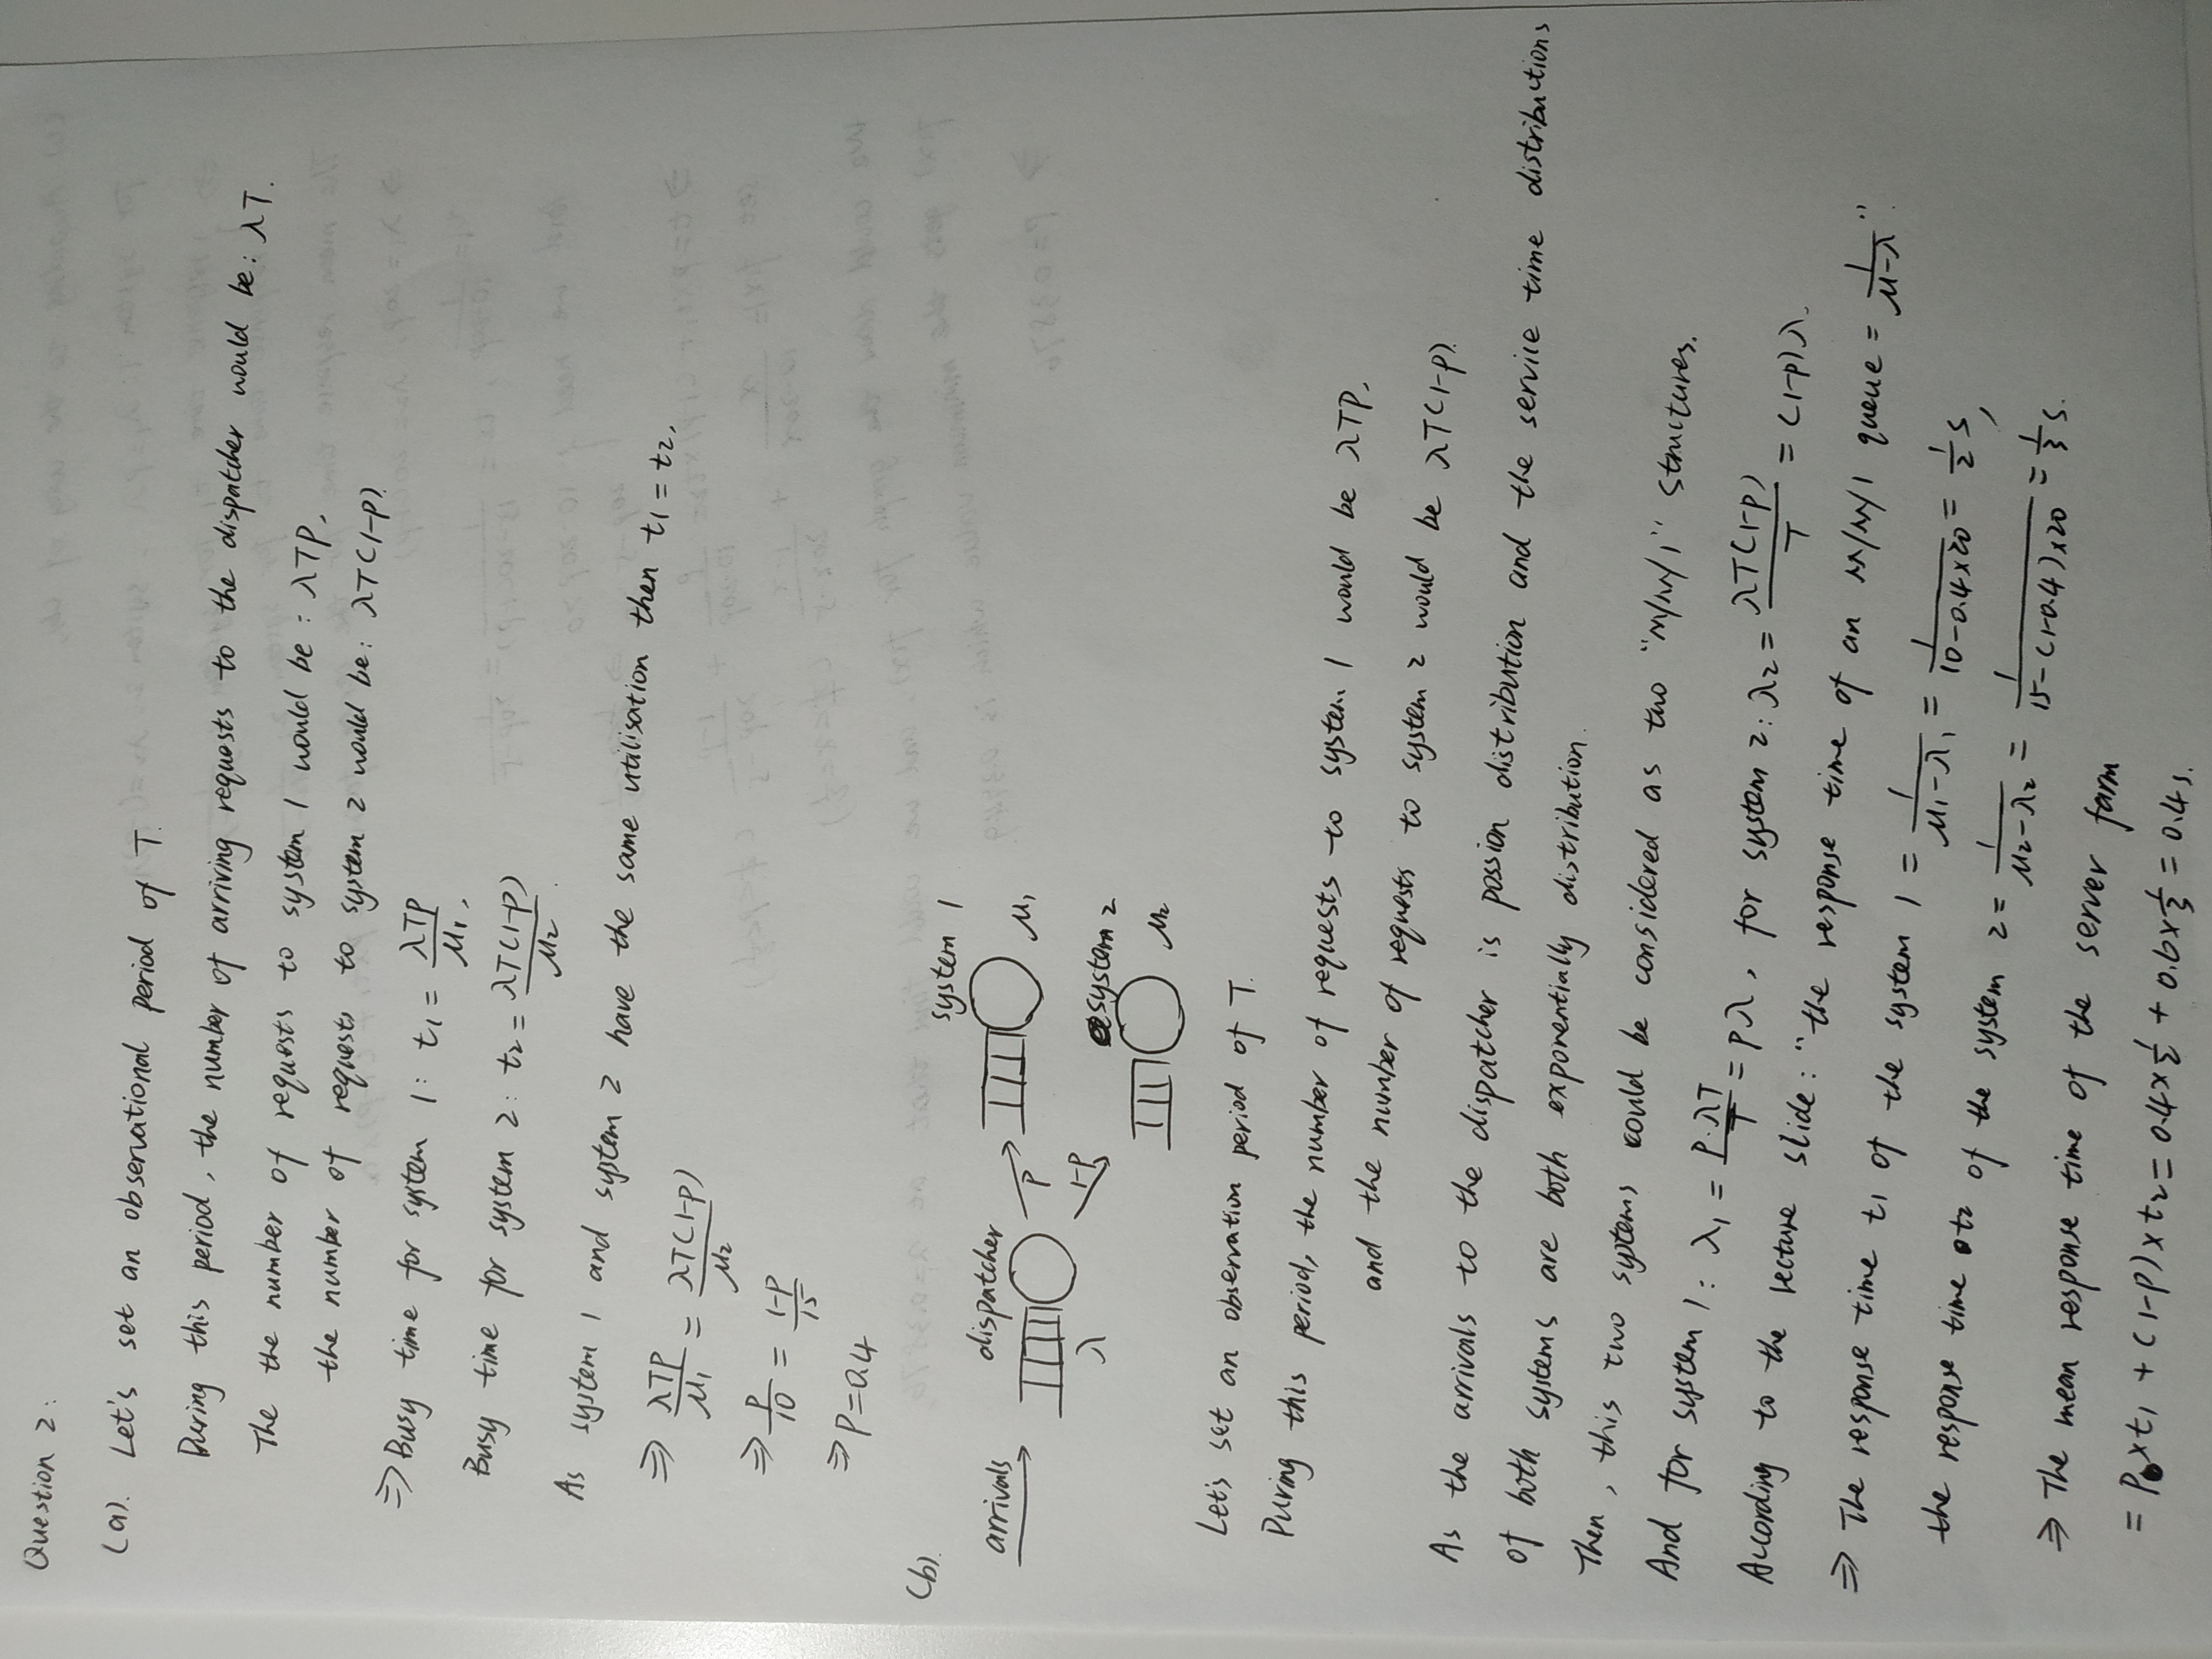 Question 2:
(a). Let's set an observational period of T.
During this period, the number of arriving requests to the dispatcher would be: λT.
The the number of requests to system 1 would be: λTP,
the number of requests to system 2 would be: λT(1-P).
⇒ Busy time for system 1: t₁ = λTP/μ₁,
Busy time for system 2: t₂ = λT(1-P)/μ₂.
As system 1 and system 2 have the same utilisation then t₁ = t₂,
⇒ λTP/μ₁ = λT(1-P)/μ₂
⇒ P/10 = 1-P/15
⇒ P=0.4
(b).
system 1
arrivals
dispatcher
P
μ₁
λ
1-P
system 2
μ₂
Let's set an observation period of T.
During this period, the number of requests to system 1 would be λTP,
and the number of requests to system 2 would be λT(1-P).
As the arrivals to the dispatcher is possion distribution and the service time distributions
of both systems are both exponentially distribution.
Then, this two systems could be considered as two "M/M/1" structures.
And for system 1: λ₁ = P·λT/T = Pλ, for system 2: λ₂ = λT(1-P)/T = (1-P)λ.
According to the lecture slide: "the response time of an M/M/1 queue = 1/μ-λ".
⇒ The response time t₁ of the system 1 = 1/μ₁-λ₁ = 1/10-0.4×20 = 1/2 s,
the response time t₂ of the system 2 = 1/μ₂-λ₂ = 1/15-(1-0.4)×20 = 1/3 s.
⇒ The mean response time of the server farm
= P×t₁ + (1-P)×t₂ = 0.4×1/2 + 0.6×1/3 = 0.4s.